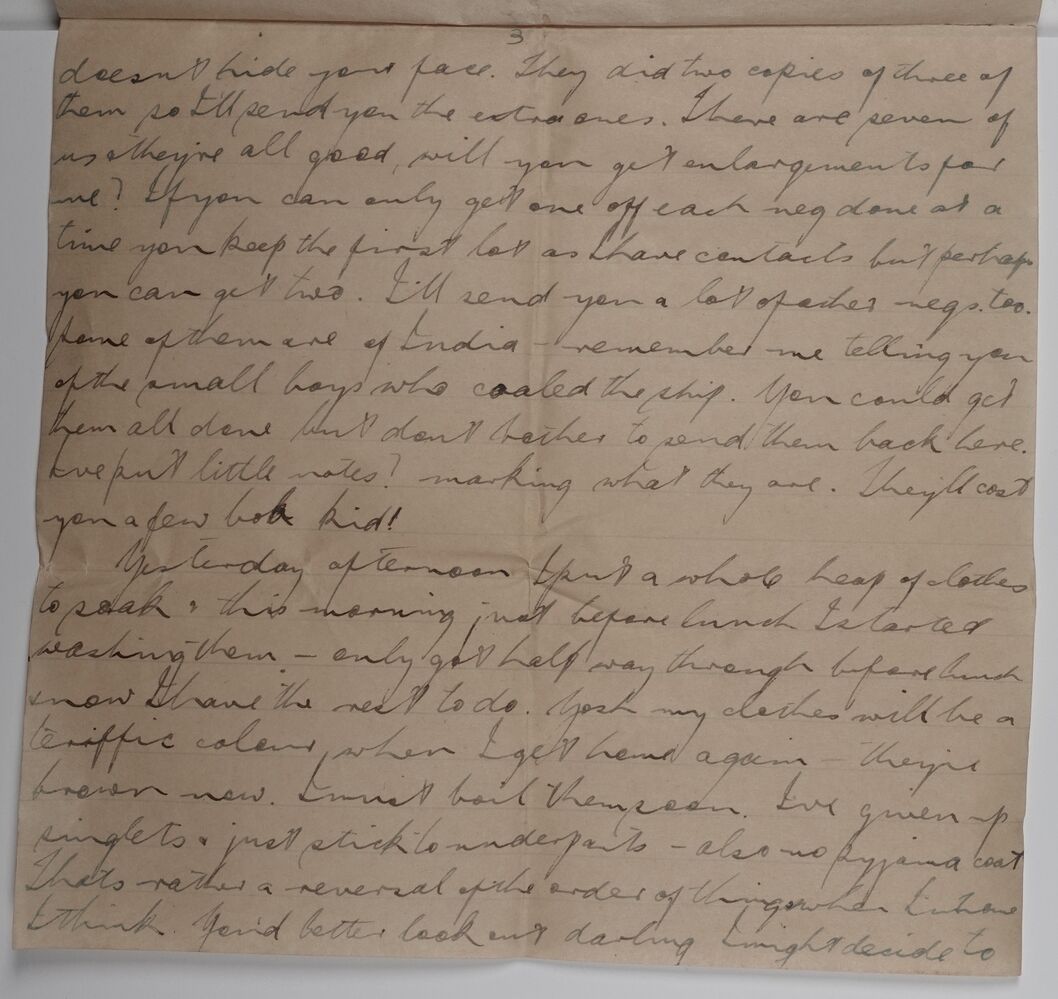 3
doesn't hide your face. They did two copies of three of
them so I'll send you the extra ones. There are seven of
us & they're all good, will you get enlargements for
me? If you can only get one off each neg done at a
time you keep the first lot as I have contacts but perhaps
you can get two. I'll send you a lot of other negs. too.
Some of them are of India - remember me telling you
of the small boys who coaled the ship. You could get
them all done but don't bother to send them back here.
I've put little notes? marking what they are. They'll cost
you a few bob kid!
Yesterday afternoon I put a whole heap of clothes
to soak & this morning just before lunch I started
washing them - only got half way through before lunch
& now I have the rest to do. Gosh my clothes will be a
teriffic colour, when I get home again - they're
brown now. I must boil them soon. I've given up
singlets & just stick to underpants - also no pyjama coat
Thats rather a reversal of the order of things when I'm home
I think. You'd better look out darling I might decide to